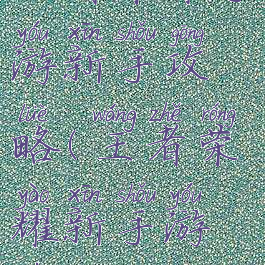 yóu xīn shǒu gōng
游新手攻
lüè ( wáng zhě róng
略(王者荣
yào xīn shǒu yóu
耀新手游